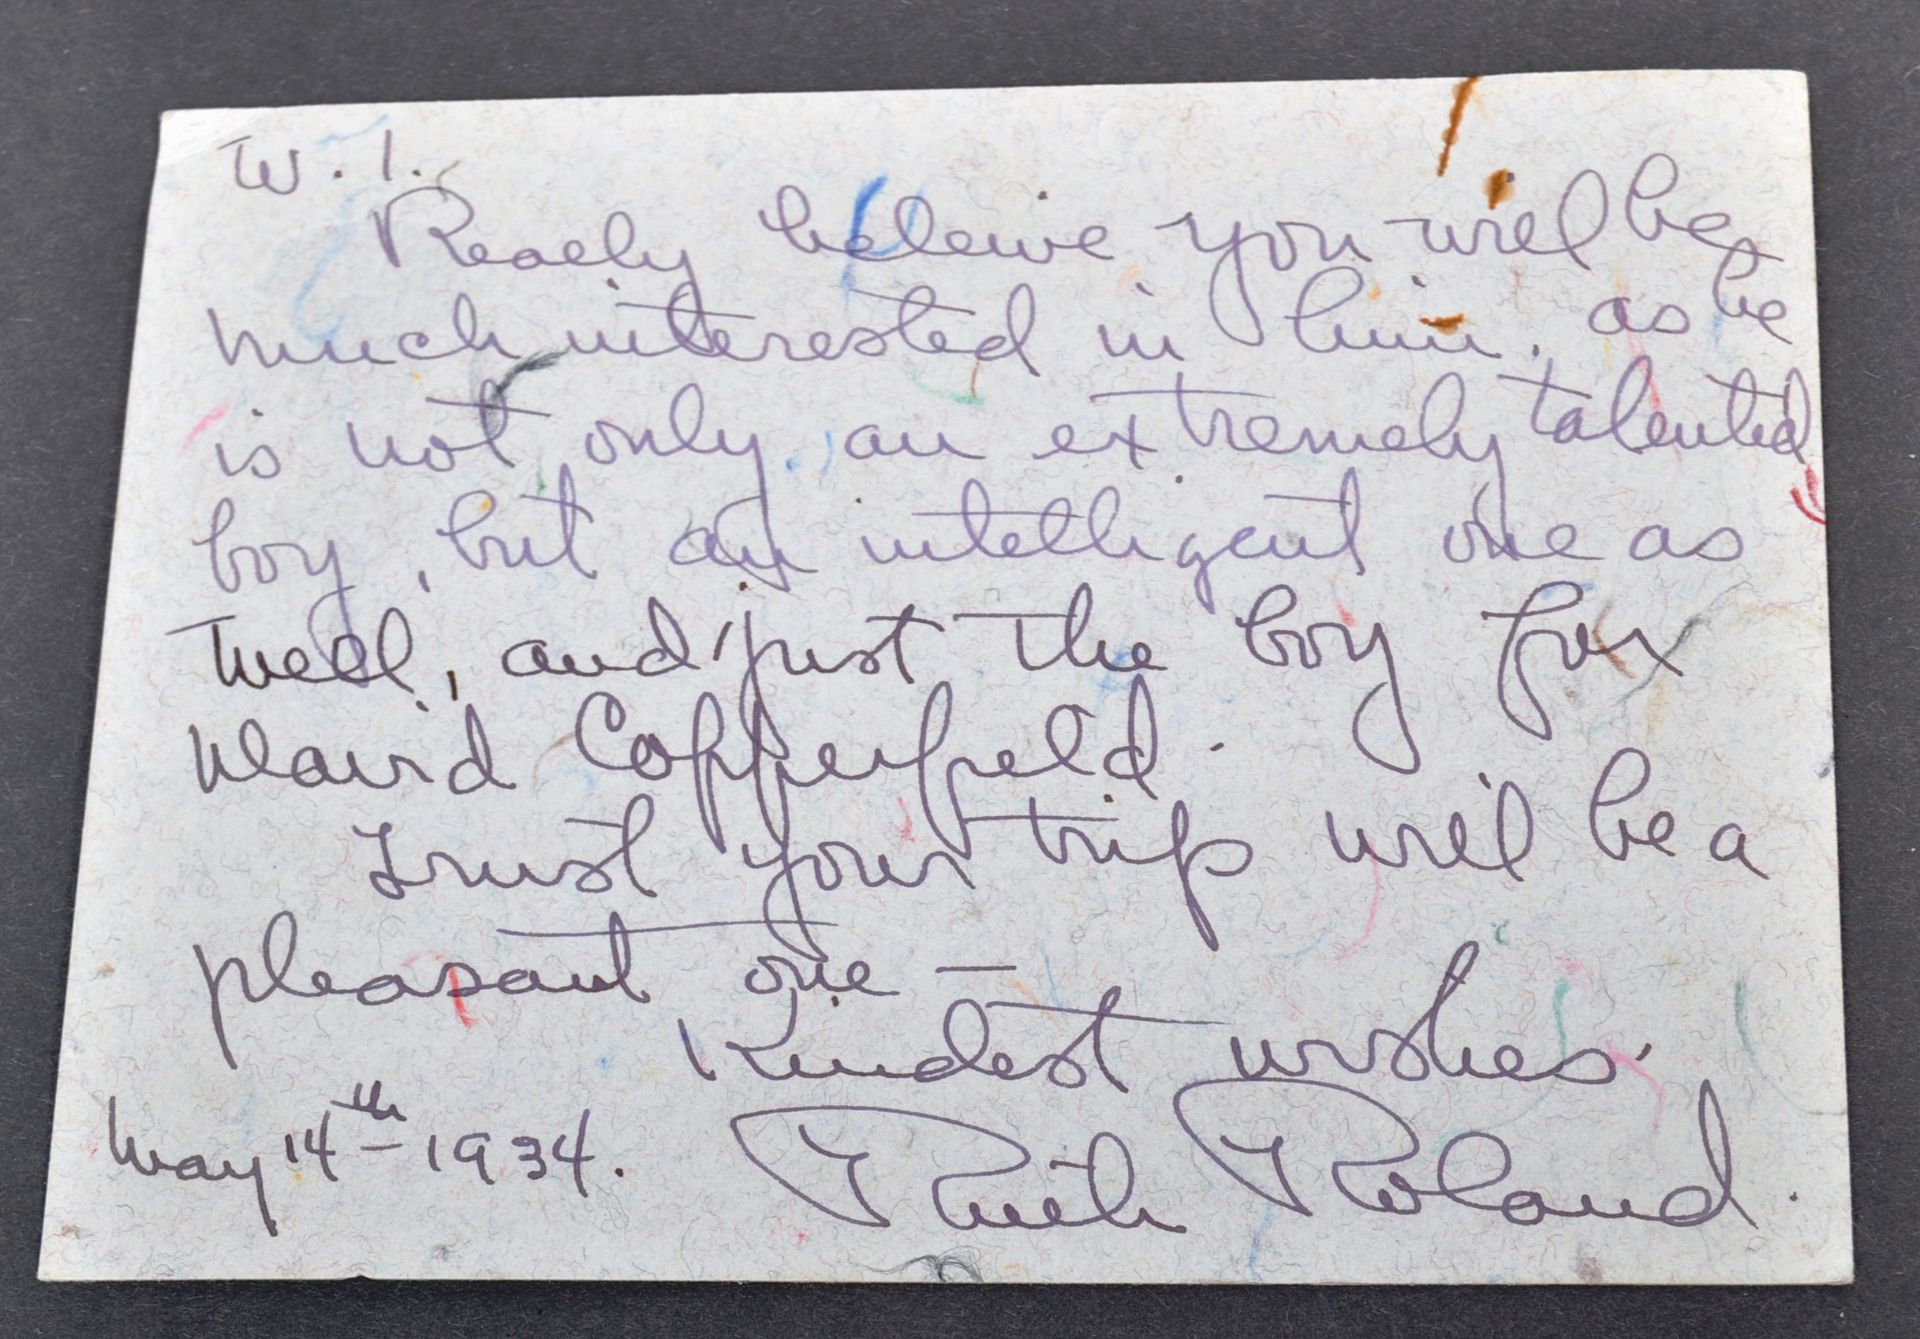 W. I.
Really beleive you will be
much interested in him, as he
is not only an extremely talented
boy, but an intelligent one as
well, and just the boy for
David Copperfield.
Trust your trip will be a
pleasant one —
Kindest wishes.
May 14th - 1934. Ruth Roland.